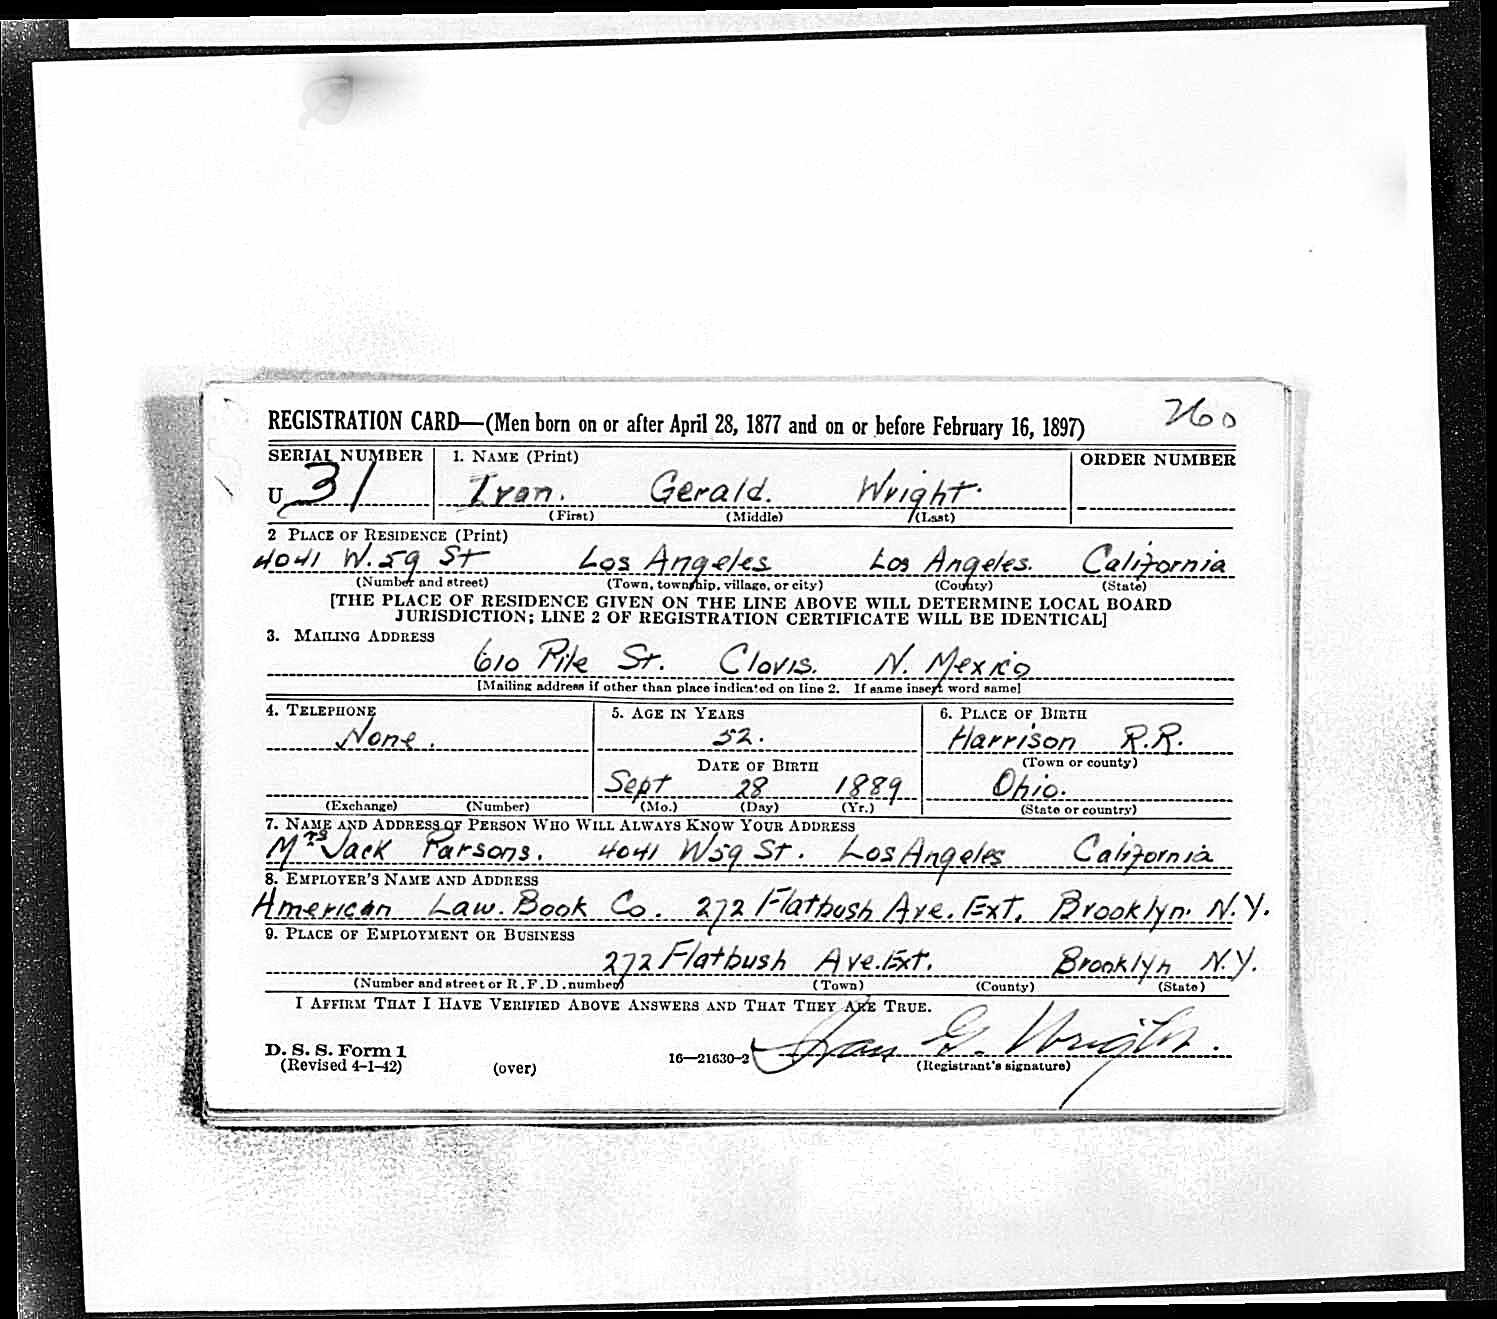 REGISTRATION CARD—(Men born on or after April 28, 1877 and on or before February 16, 1897) 260
SERIAL NUMBER 1. NAME (Print) ORDER NUMBER
U 31 Ivan. Gerald. Wright.
(First) (Middle) (Last)
2 PLACE OF RESIDENCE (Print)
4041 W. 59 St Los Angeles Los Angeles. California
(Number and street) (Town, township, village, or city) (County) (State)
[THE PLACE OF RESIDENCE GIVEN ON THE LINE ABOVE WILL DETERMINE LOCAL BOARD
JURISDICTION; LINE 2 OF REGISTRATION CERTIFICATE WILL BE IDENTICAL]
3. MAILING ADDRESS
610 Pile St. Clovis. N. Mexico
[Mailing address if other than place indicated on line 2. If same insert word same]
4. TELEPHONE 5. AGE IN YEARS 6. PLACE OF BIRTH
None. 52. Harrison R.R.
DATE OF BIRTH (Town or county)
Sept 28 1889 Ohio.
(Exchange) (Number) (Mo.) (Day) (Yr.) (State or country)
7. NAME AND ADDRESS OF PERSON WHO WILL ALWAYS KNOW YOUR ADDRESS
Mrs Jack Parsons. 4041 W59 St. Los Angeles California
8. EMPLOYER'S NAME AND ADDRESS
American Law. Book Co. 272 Flatbush Ave. Ext. Brooklyn. N.Y.
9. PLACE OF EMPLOYMENT OR BUSINESS
272 Flatbush Ave. Ext. Brooklyn N.Y.
(Number and street or R. F. D. number) (Town) (County) (State)
I AFFIRM THAT I HAVE VERIFIED ABOVE ANSWERS AND THAT THEY ARE TRUE.
Ivan G. Wright.
D. S. S. Form 1
(Revised 4-1-42) (over) 16—21630-2 (Registrant's signature)